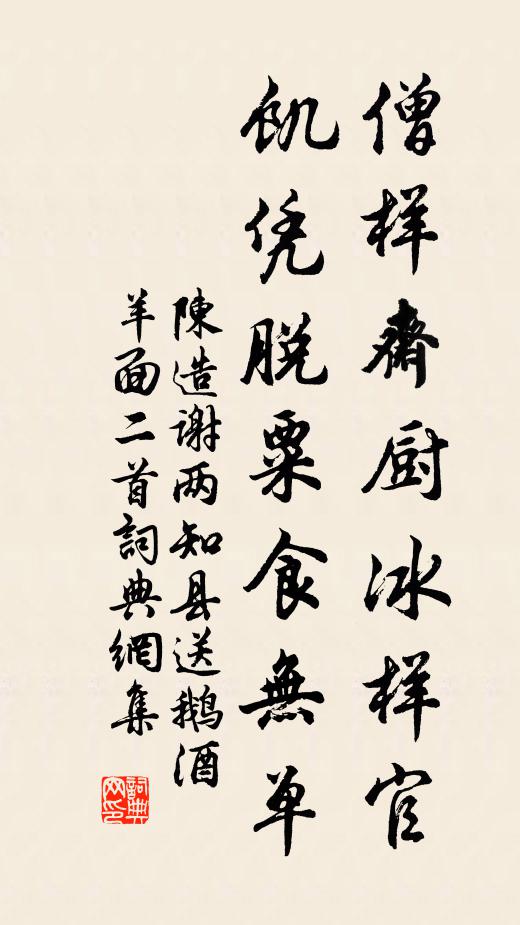 僧样齋厨冰样官
飢凭脱粟食無单
陳造谢两知县送鵝酒
羊面二首詞典網集
詞典
网印